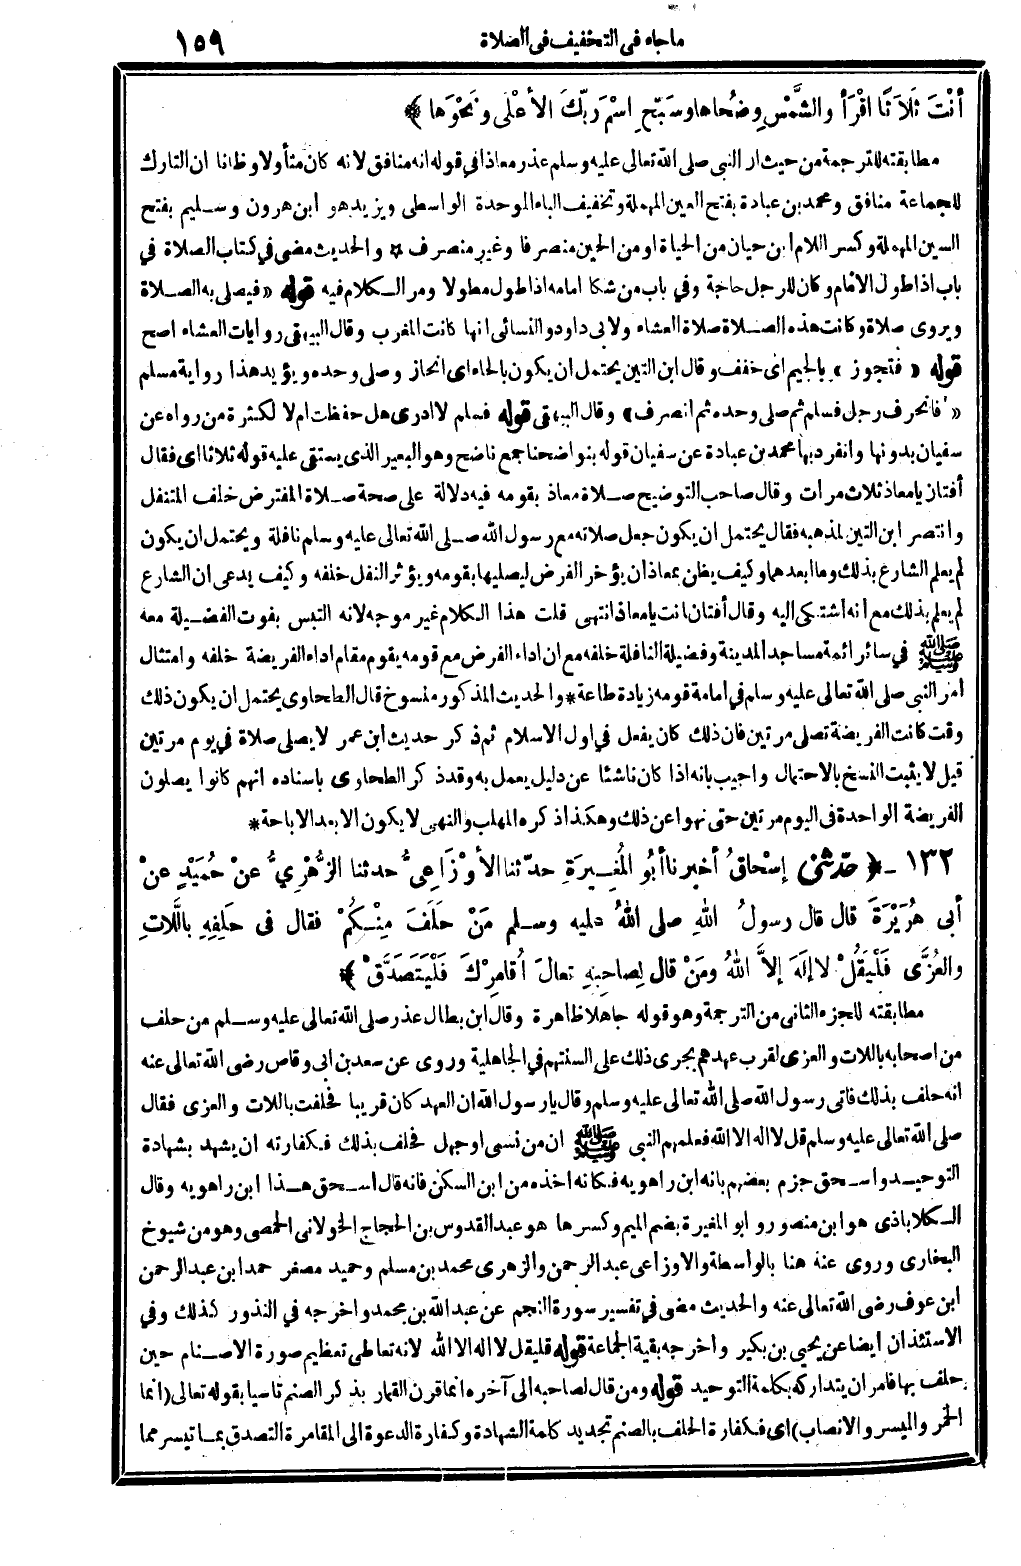 ما جاء في التخفيف في الصلاة
١٥٩
أنْتَ ثَلاَثًا اقْرَأ والشَّمْسِ وضُحاها وسَبِّحِ اسْمَ رَبِّكَ الأعْلَى ونَحْوَها ﴾
مطابقته للترجمة من حيث ان النبي صلى الله تعالى عليه وسلم عذر معاذا في قوله انه منافق لانه كان متأولا وظانا ان التارك
للجماعة منافق ومحمد بن عبادة بفتح العين المهملة وتخفيف الباء الموحدة الواسطى ويزيد هو ابن هرون وسليم بفتح
السين المهملة وكسر اللام ابن حيان من الحياة او من الحين منصرفا وغير منصرف * والحديث مضى في كتاب الصلاة في
باب اذا طول الامام وكان للرجل حاجة وفي باب من شكا امامه اذا طول مطولا ومر الكلام فيه قوله «فيصلى به الصلاة
ويروى صلاة وكانت هذه الصلاة صلاة العشاء ولابى داود والنسائى انها كانت المغرب وقال البيهقى روايات العشاء اصح
قوله «فتجوز» بالجيم اى خفف وقال ابن التين يحتمل ان يكون بالحاء اى انحاز وصلى وحده ويؤيد هذا رواية مسلم
«فانحرف رجل فسلم ثم صلى وحده ثم انصرف» وقال البيهقى قوله فسلم لا ادرى هل حفظت ام لا لكثرة من رواه عن
سفيان بدونها وانفرد بها محمد بن عبادة عن سفيان قوله بنواضحنا جمع ناضح وهو البعير الذى يستقى عليه قوله ثلاثا اى فقال
أفتان يا معاذ ثلاث مرات وقال صاحب التوضيح صلاة معاذ بقومه فيه دلالة على صحة صلاة المفترض خلف المتنفل
وانتصر ابن التين لمذهبه فقال يحتمل ان يكون جعل صلاته مع رسول الله صلى الله تعالى عليه وسلم نافلة ويحتمل ان يكون
لم يعلم الشارع بذلك وما ابعدهما وكيف يظن بمعاذ ان يؤخر الفرض ليصليها بقومه ويؤثر النفل خلفه وكيف يدعى ان الشارع
لم يعلم بذلك مع انه اشتكى اليه وقال أفتان انت يا معاذ انتهى قلت هذا الكلام غير موجه لانه التبس بفوت الفضيلة معه
ﷺ في سائر ائمة مساجد المدينة وفضيلة النافلة خلفه مع ان اداء الفرض مع قومه يقوم مقام اداء الفريضة خلفه وامتثال
امر النبي صلى الله تعالى عليه وسلم في امامة قومه زيادة طاعة * والحديث المذكور منسوخ قال الطحاوى يحتمل ان يكون ذلك
وقت كانت الفريضة تصلى مرتين فان ذلك كان يفعل في اول الاسلام ثم ذكر حديث ابن عمر لا يصلى صلاة في يوم مرتين
قيل لا يثبت النسخ بالاحتمال واجيب بانه اذا كان ناشئا عن دليل يعمل به وقد ذكر الطحاوى باسناده انهم كانوا يصلون
الفريضة الواحدة في اليوم مرتين حتى نهوا عن ذلك وهكذا ذكره المهلب والنهى لا يكون الا بعد الاباحة *
١٣٢ - ﴿ حدّثني إسْحاقُ أخبرنا أبُو المُغِيرَةِ حدّثنا الأوْزَاعِىُّ حدثنا الزُّهْرِيُّ عنْ حُمَيْدٍ عنْ
أبى هُرَيْرَةَ قال قال رسولُ اللهِ صلى اللهُ عليه وسلم مَنْ حَلَفَ مِنْكُمْ فقال فى حَلِفِهِ بِاللَّاتِ
والعُزَّى فَلْيَقُلْ لا إلَهَ إلاَّ اللهُ ومَنْ قال لِصاحِبِهِ تعالَ أُقامِرْكَ فَلْيَتَصَدَّقْ ﴾
مطابقته للجزء الثاني من الترجمة وهو قوله جاهلا ظاهرة وقال ابن بطال عذر صلى الله تعالى عليه وسلم من حلف
من اصحابه باللات والعزى لقرب عهدهم بجرى ذلك على السنتهم في الجاهلية وروى عن سعد بن ابى وقاص رضى الله تعالى عنه
انه حلف بذلك فاتى رسول الله صلى الله تعالى عليه وسلم وقال يا رسول الله ان العهد كان قريبا فحلفت باللات والعزى فقال
صلى الله تعالى عليه وسلم قل لا اله الا الله فعلمهم النبي ﷺ ان من نسى او جهل فحلف بذلك فكفارته ان يشهد بشهادة
التوحيد واسحق جزم بعضهم بانه ابن راهويه فكانه اخذه من ابن السكن فانه قال اسحق هذا ابن راهويه وقال
الكلاباذى هو ابن منصور وابو المغيرة بضم الميم وكسرها هو عبد القدوس بن الحجاج الخولانى الحمصى وهو من شيوخ
البخارى وروى عنه هنا بالواسطة والاوزاعى عبد الرحمن والزهرى محمد بن مسلم وحميد مصغر حمد ابن عبد الرحمن
ابن عوف رضى الله تعالى عنه والحديث مضى في تفسير سورة النجم عن عبد الله بن محمد واخرجه في النذور كذلك وفي
الاستئذان ايضا عن يحيى بن بكير واخرجه بقية الجماعة قوله فليقل لا اله الا الله لانه تعاطى تعظيم صورة الاصنام حين
حلف بها فامر ان يتداركه بكلمة التوحيد قوله ومن قال لصاحبه الى آخره انما قرن القمار بذكر الصنم تاسيا بقوله تعالى (انما
الخمر والميسر والانصاب) اى فكفارة الحلف بالصنم تجديد كلمة الشهادة وكفارة الدعوة الى المقامرة التصدق بما تيسر مما